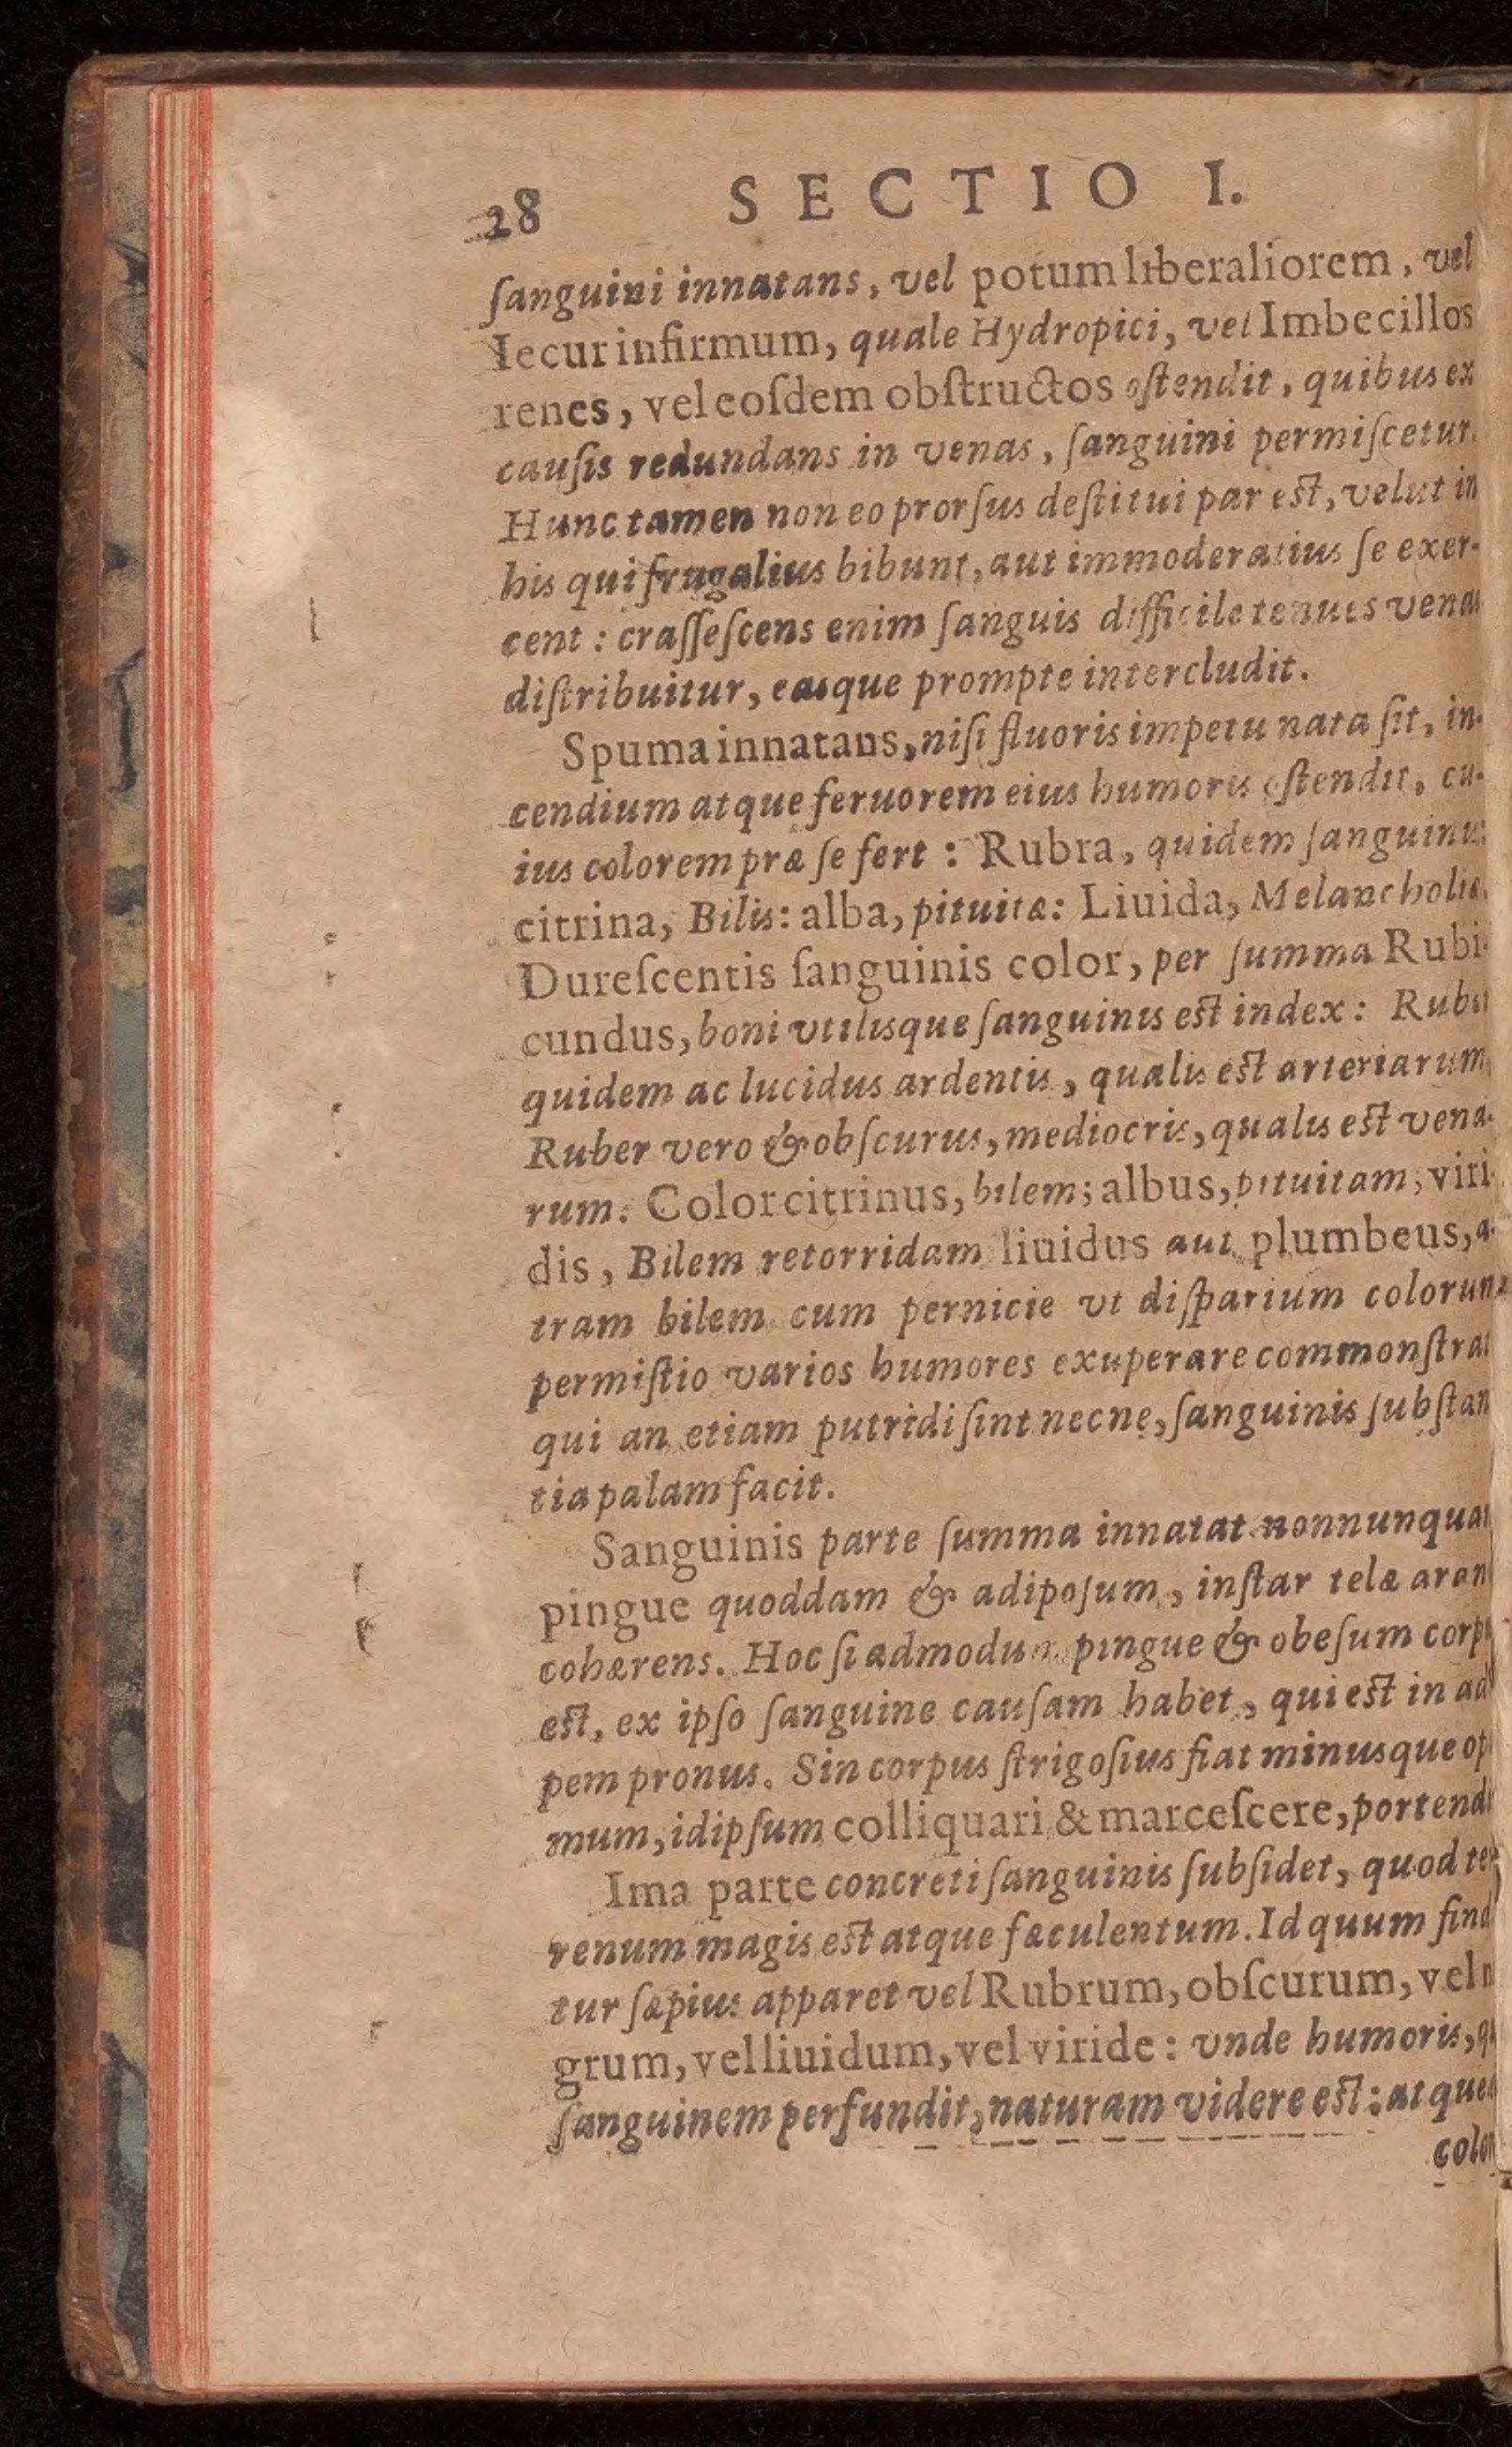 28 SECTIO I.
ſanguini innatans, vel potum liberaliorem, vel
Iecur infirmum, quale Hydropici, vel Imbecillos
renes, vel eoſdem obſtructos oſtendit, quibus ex
cauſis redundans in venas, ſanguini permiſcetur.
Hunc tamen non eo prorſus deſtitui par eſt, velut in
his qui frugalius bibunt, aut immoderatius ſe exer-
cent: craſſeſcens enim ſanguis difficile tenues venas
diſtribuitur, easque prompte intercludit.
Spuma innatans, niſi fluoris impetu nata ſit, in-
cendium atque feruorem eius humoris oſtendit, cu-
ius colorem præ ſe fert: Rubra, quidem ſanguinis
citrina, Bilis: alba, pituitæ: Liuida, Melancholiæ.
Dureſcentis ſanguinis color, per ſumma Rubi-
cundus, boni vtilisque ſanguinis eſt index: Ruber
quidem ac lucidus ardentis, qualis eſt arteriarum,
Ruber vero & obſcurus, mediocris, qualis eſt vena-
rum. Color citrinus, bilem; albus, pituitam; viri-
dis, Bilem retorridam liuidus aut plumbeus, a-
tram bilem cum pernicie vt diſparium colorum
permiſtio varios humores exuperare commonſtrat
qui an etiam putridi ſint necne, ſanguinis ſubſtan
tia palam facit.
Sanguinis parte ſumma innatat nonnunquam
pingue quoddam & adipoſum, inſtar telæ aran
cohærens. Hoc ſi admodum pingue & obeſum corp
eſt, ex ipſo ſanguine cauſam habet, qui eſt in adi
pem pronus. Sin corpus ſtrigoſius fiat minusque opi
mum, idipſum colliquari & marceſcere, portendi
Ima parte concreti ſanguinis ſubſidet, quod ter
renum magis eſt atque fæculentum. Id quum find
tur ſæpius apparet vel Rubrum, obſcurum, vel n
grum, vel liuidum, vel viride: vnde humoris, qu
ſanguinem perfundit, naturam videre eſt: atque
color